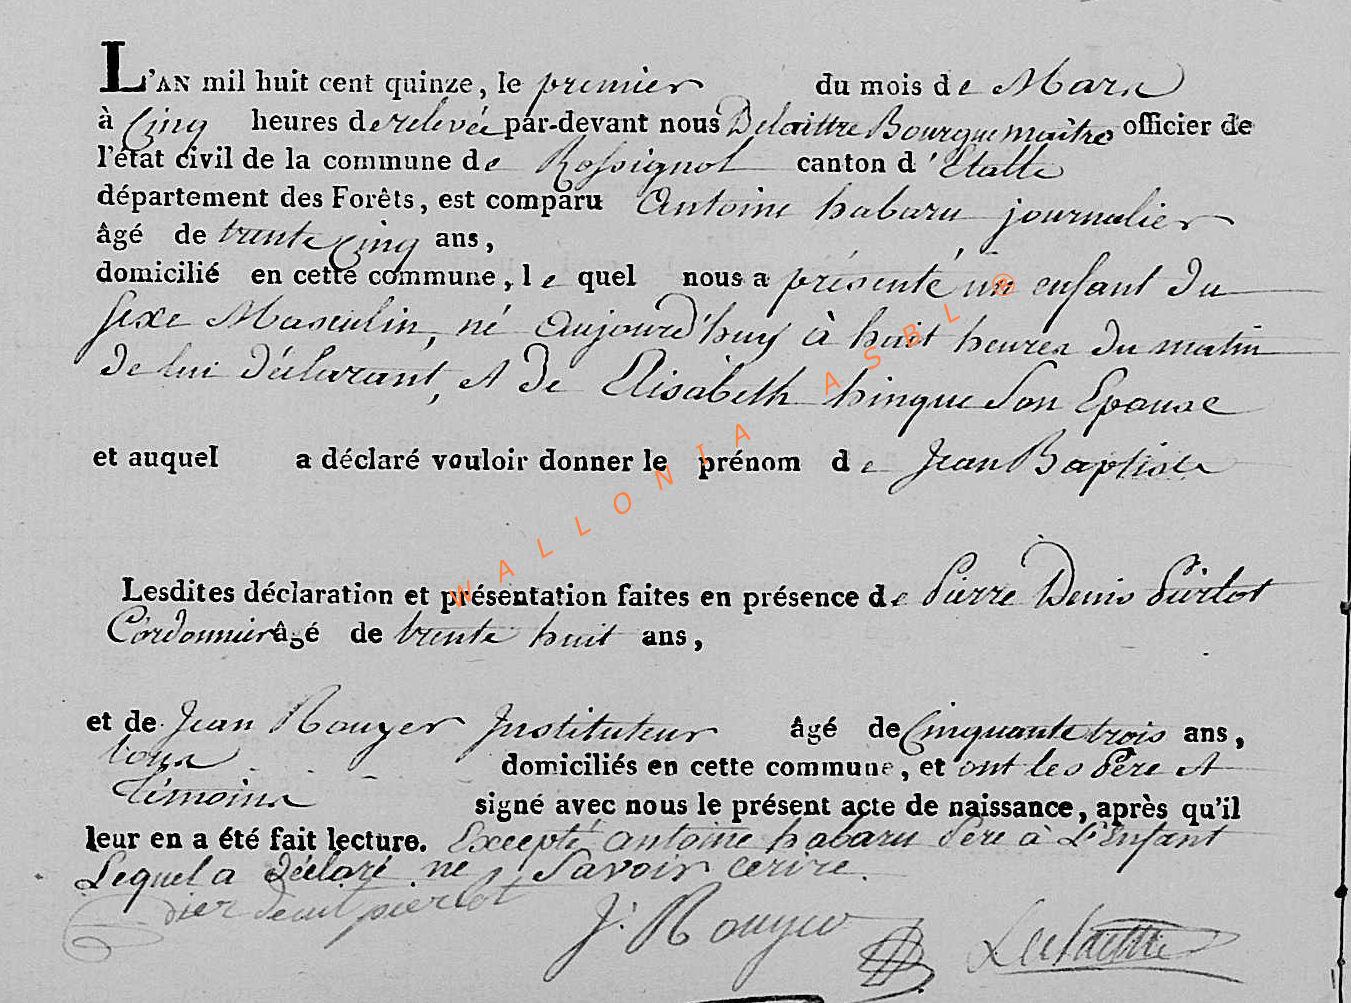 L'AN mil huit cent quinze, le premier du mois de Mars
à Cinq heures de relevée par-devant nous Delaittre Bourguemaitre officier de
l'état civil de la commune de Rossignol canton d'Etalle
département des Forêts, est comparu Antoine habaru journalier
âgé de trente Cinq ans,
domicilié en cette commune, le quel nous a présenté un enfant du
sexe Masculin, né aujourd'huy à huit heures du matin
de lui déclarant, et de Elisabeth hinque Son Epouse
et auquel a déclaré vouloir donner le prénom de Jean Baptiste
Lesdites déclaration et présentation faites en présence de Pierre Denis Pierlot
Cordonnier âgé de trente huit ans,
et de Jean Rouyer Instituteur âgé de Cinquante trois ans,
tous domiciliés en cette commune, et ont les Père et
Témoins signé avec nous le présent acte de naissance, après qu'il
leur en a été fait lecture. Excepté antoine habaru Père à L'Enfant
Lequel a déclaré ne Savoir ecrire.
pierlot J: Rouyer Delaittre
WALLONIA ASBL ®